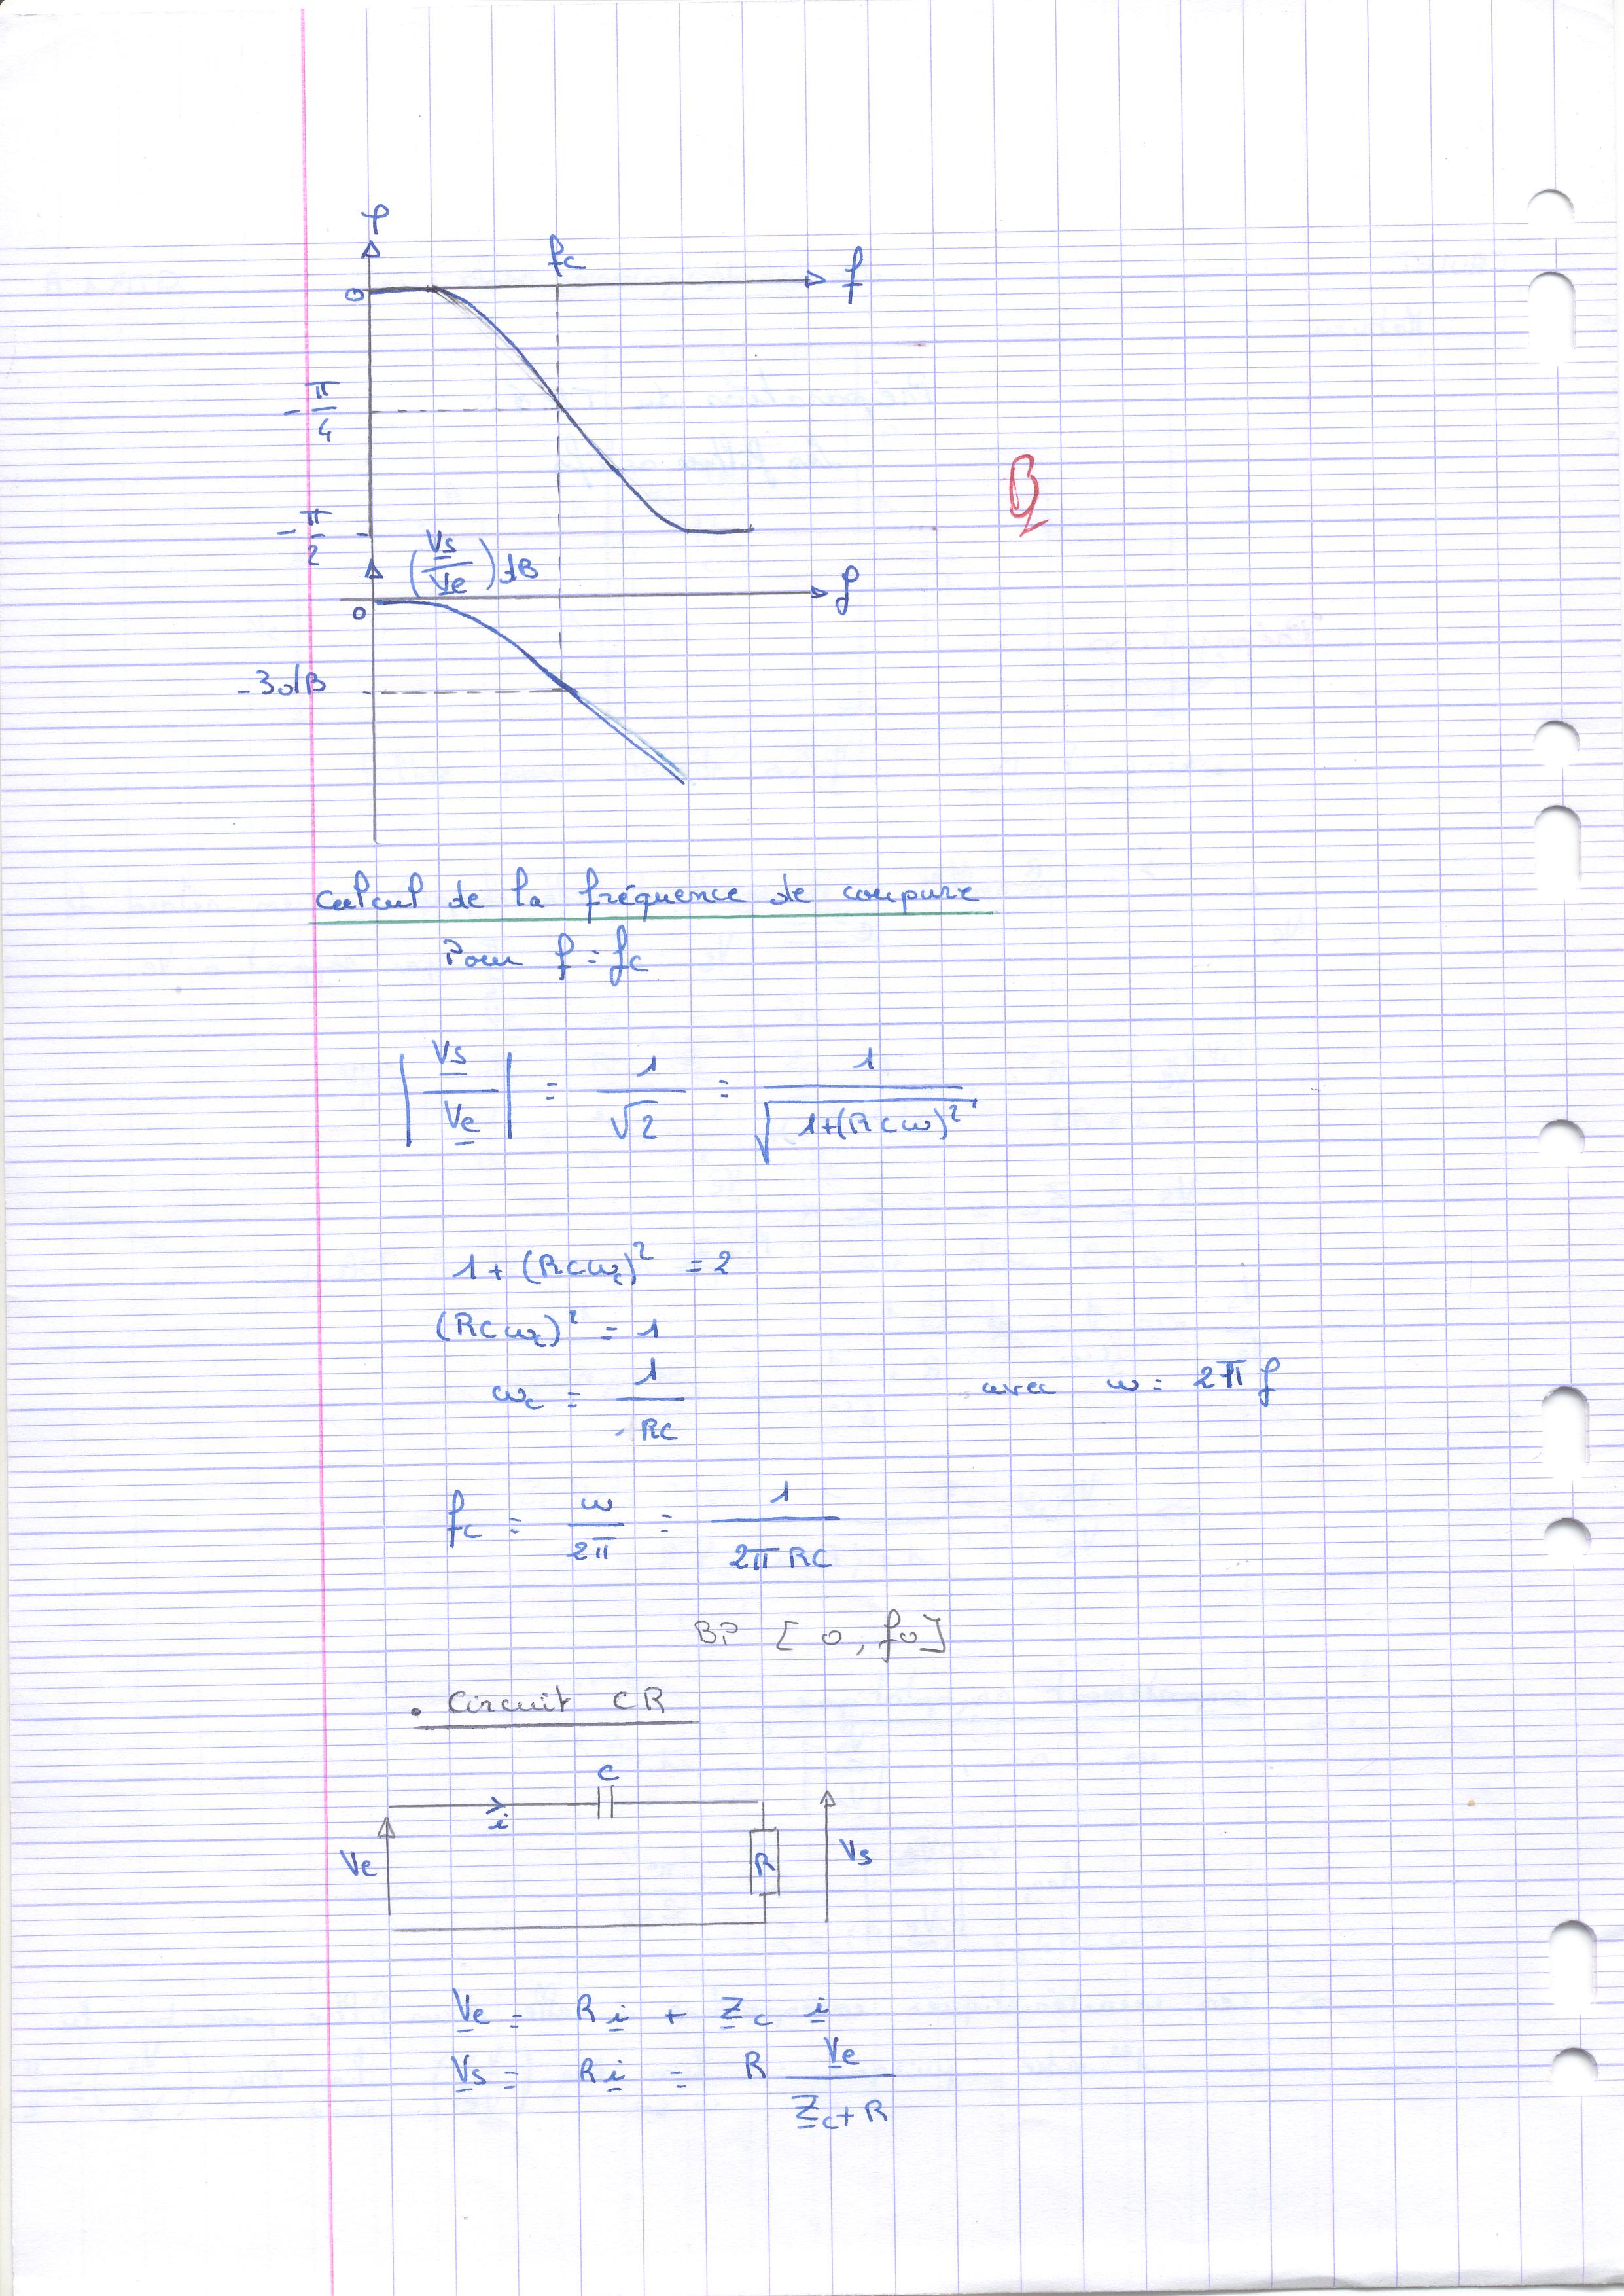 φ
fc
f
0
-π/4
-π/2
(Vs/Ve)dB
f
0
-3dB
B
Calcul de la fréquence de coupure
Pour f = fc
|Vs/Ve| = 1/√2 = 1/√(1+(RCω)²)
1 + (RCωc)² = 2
(RCωc)² = 1
ωc = 1/RC avec ω = 2πf
fc = ω/2π = 1/2πRC
BP [0, f0]
. Circuit CR
C
i
Ve
R
Vs
Ve = Ri + Zc i
Vs = Ri = R Ve/(Zc+R)